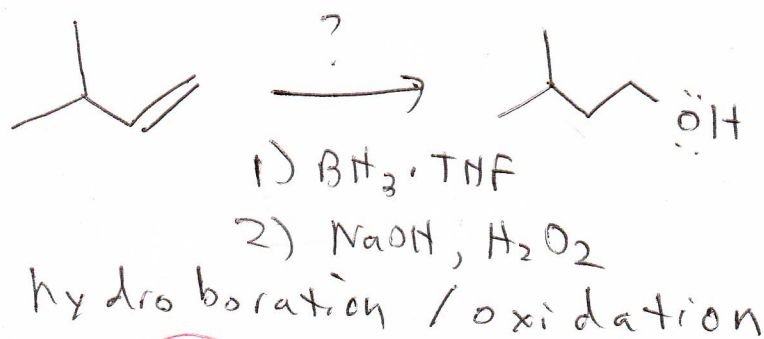 ?
ÖH
1) BH₃ · THF
2) NaOH, H₂O₂
hydroboration / oxidation